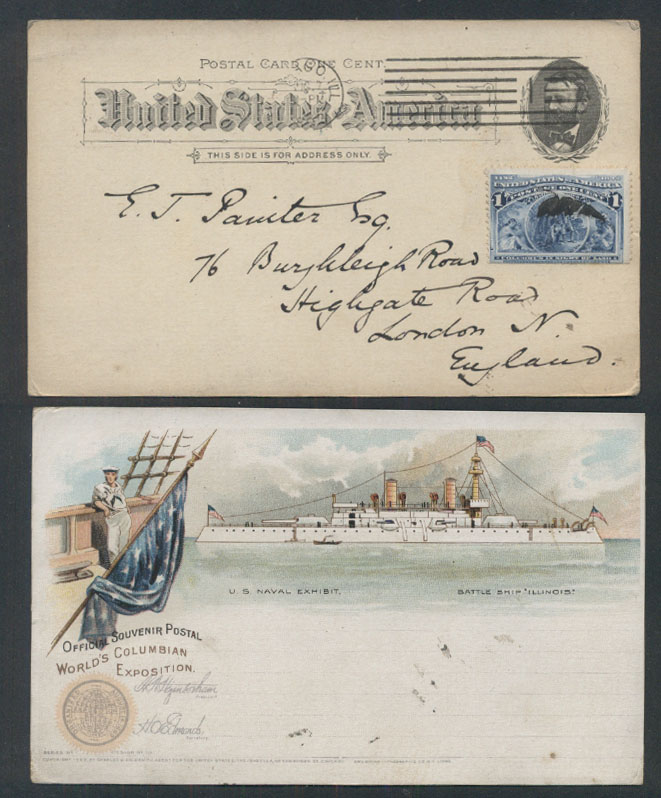 POSTAL CARD ONE CENT.
United States of America
THIS SIDE IS FOR ADDRESS ONLY.
UNITED STATES OF AMERICA
POSTAGE ONE CENT
1 1
COLUMBUS IN SIGHT OF LAND
E. T. Painter Esq.
76 Burghleigh Road
Highgate Road
London N.
England.
U. S. NAVAL EXHIBIT.
BATTLE SHIP "ILLINOIS."
OFFICIAL SOUVENIR POSTAL
WORLD'S COLUMBIAN
EXPOSITION.